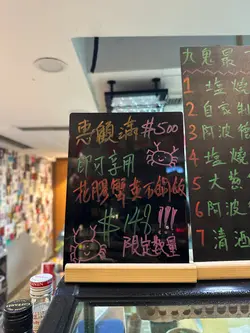 惠顧滿$500
即可享用
花膠蟹黃石鍋飯
$148!!!
限定數量
九鬼最
1 塩燒
2 自家製
3 阿波
4 塩燒
5 大葱
6 阿波
7 清酒